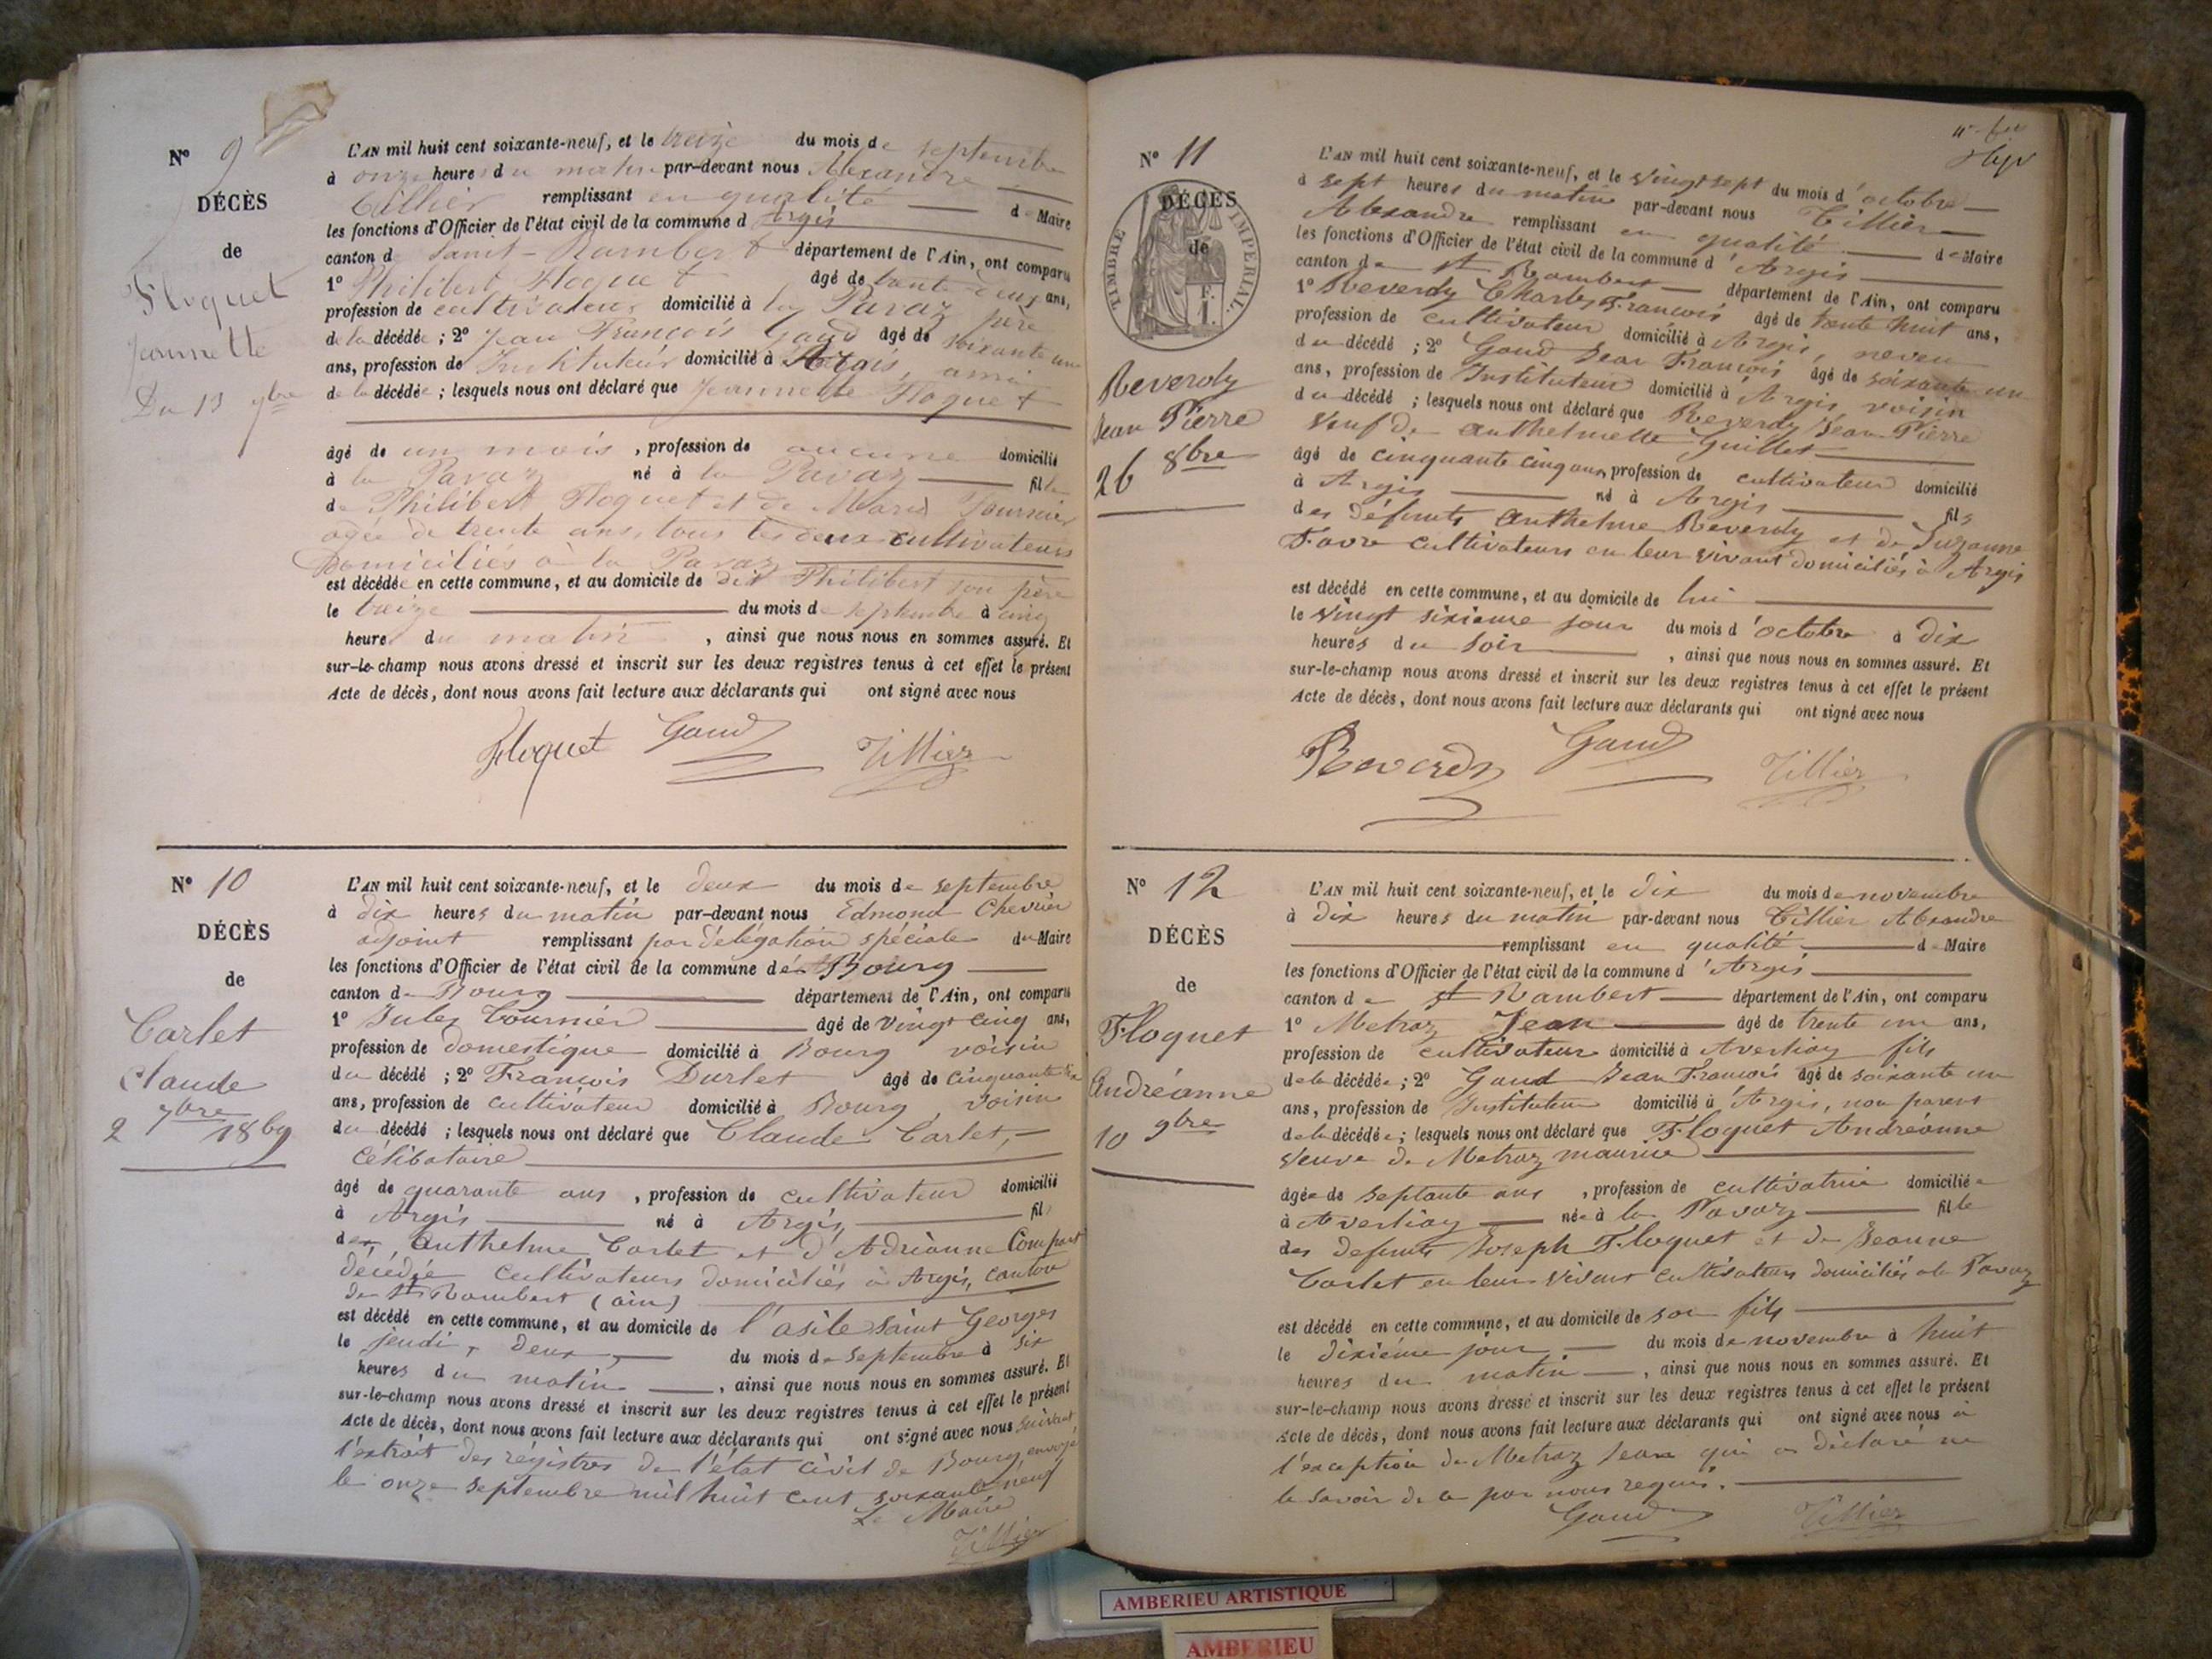 N° 9
DÉCÈS
de
Floquet
Jeannette
Du 13 7bre
L'AN mil huit cent soixante-neuf, et le treize du mois de septembre
à onze heures du matin par-devant nous Alexandre
Tillier remplissant en qualité de Maire
les fonctions d'Officier de l'état civil de la commune d'Argis
canton de Saint-Rambert département de l'Ain, ont comparu
1° Philibert Floquet âgé de trente deux ans,
profession de cultivateur domicilié à la Pavaz père
de la décédée ; 2° Jean François Gaud âgé de soixante un
ans, profession de Instituteur domicilié à Argis, ami
de la décédée ; lesquels nous ont déclaré que Jeannette Floquet
âgé de un mois, profession de aucune domicilié
à la Pavaz né à la Pavaz fille
de Philibert Floquet et de Marie Fournier
agée de trente ans, tous les deux cultivateurs
Domiciliés à la Pavaz
est décédée en cette commune, et au domicile de dit Philibert son père
le treize du mois de septembre à cinq
heures du matin, ainsi que nous nous en sommes assuré. Et
sur-le-champ nous avons dressé et inscrit sur les deux registres tenus à cet effet le présent
Acte de décès, dont nous avons fait lecture aux déclarants qui ont signé avec nous
Floquet Gaud Tillier
N° 10
DÉCÈS
de
Carlet
Claude
2 7bre 1869
L'AN mil huit cent soixante-neuf, et le deux du mois de septembre
à dix heures du matin par-devant nous Edmond Chevrier
adjoint remplissant par délégation spéciale du Maire
les fonctions d'Officier de l'état civil de la commune de Bourg
canton de Bourg département de l'Ain, ont comparu
1° Jules Cournier âgé de vingt cinq ans,
profession de domestique domicilié à Bourg voisin
du décédé ; 2° François Durlet âgé de cinquante six
ans, profession de cultivateur domicilié à Bourg, voisin
du décédé ; lesquels nous ont déclaré que Claude Carlet,
célibataire
âgé de quarante ans, profession de cultivateur domicilié
à Argis né à Argis, fils
de Anthelme Carlet et d'Adrianne Compart
décédée cultivateurs domiciliés à Argis, canton
de St Rambert (ain)
est décédé en cette commune, et au domicile de l'asile Saint Georges
le jeudi, deux, du mois de septembre à six
heures du matin, ainsi que nous nous en sommes assuré. Et
sur-le-champ nous avons dressé et inscrit sur les deux registres tenus à cet effet le présent
Acte de décès, dont nous avons fait lecture aux déclarants qui ont signé avec nous suivant
l'extrait des régistres de l'état civil de Bourg, envoyé
le onze septembre mil huit cent soixante neuf
Le Maire
Tillier
N° 11
DÉCÈS
de
TIMBRE IMPÉRIAL
1 F.
Reverdy
Jean Pierre
26 8bre
L'AN mil huit cent soixante-neuf, et le vingt sept du mois d'octobre
à sept heures du matin par-devant nous Tillier
Alexandre remplissant en qualité de Maire
les fonctions d'Officier de l'état civil de la commune d'Argis
canton de St Rambert département de l'Ain, ont comparu
1° Reverdy Charles François âgé de trente huit ans,
profession de cultivateur domicilié à Argis, neveu
du décédé ; 2° Gaud Jean François âgé de soixante un
ans, profession de Instituteur domicilié à Argis, voisin
du décédé ; lesquels nous ont déclaré que Reverdy Jean Pierre
veuf de Anthelmette Guillet
âgé de cinquante cinq ans, profession de cultivateur domicilié
à Argis né à Argis fils
des défunts Anthelme Reverdy et de Suzanne
Favre cultivateurs en leur vivant domiciliés à Argis
est décédé en cette commune, et au domicile de lui
le vingt sixieme jour du mois d'octobre à dix
heures du soir, ainsi que nous nous en sommes assuré. Et
sur-le-champ nous avons dressé et inscrit sur les deux registres tenus à cet effet le présent
Acte de décès, dont nous avons fait lecture aux déclarants qui ont signé avec nous
Reverdy Gaud Tillier
N° 12
DÉCÈS
de
Floquet
Andréanne
10 9bre
L'AN mil huit cent soixante-neuf, et le dix du mois de novembre
à dix heures du matin par-devant nous Tillier Alexandre
remplissant en qualité de Maire
les fonctions d'Officier de l'état civil de la commune d'Argis
canton de St Rambert département de l'Ain, ont comparu
1° Metraz Jean âgé de trente un ans,
profession de cultivateur domicilié à Averliaz fils
de la décédée ; 2° Gaud Jean François âgé de soixante un
ans, profession de Instituteur domicilié à Argis, non parent
de la décédée ; lesquels nous ont déclaré que Floquet Andréanne
veuve de Metraz maurice
âgée de septante ans, profession de cultivatrice domiciliée
à Averliaz née à la Pavaz fille
des défunts Joseph Floquet et de Jeanne
Carlet en leur vivant cultivateurs domiciliés à la Pavaz
est décédé en cette commune, et au domicile de son fils
le dixième jour du mois de novembre à huit
heures du matin, ainsi que nous nous en sommes assuré. Et
sur-le-champ nous avons dressé et inscrit sur les deux registres tenus à cet effet le présent
Acte de décès, dont nous avons fait lecture aux déclarants qui ont signé avec nous à
l'exception de Metraz Jean qui a déclaré ne
le savoir de ce par nous requis.
Gaud Tillier
AMBERIEU ARTISTIQUE
AMBERIEU